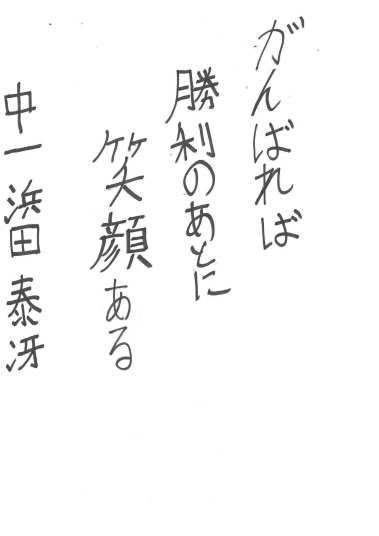 がんばれば
勝利のあとに
笑顔ある
中一 浜田 泰冴